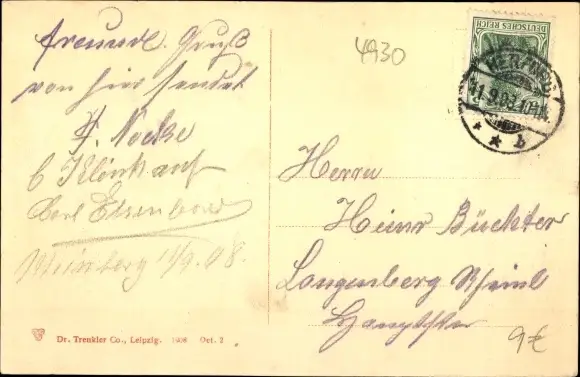 freundl. Gruß
von hier sendet
F. Nocke
C Klinkauf
Carl Eisenbar
11/9.08.
4930
DEUTSCHES REICH
11.9.08.10-11N.
* * b
Herrn
Heinr Büchter
Langenberg Rheinl
Hauptstr
9€
Dr. Trenkler Co., Leipzig. 1908 Oct. 2